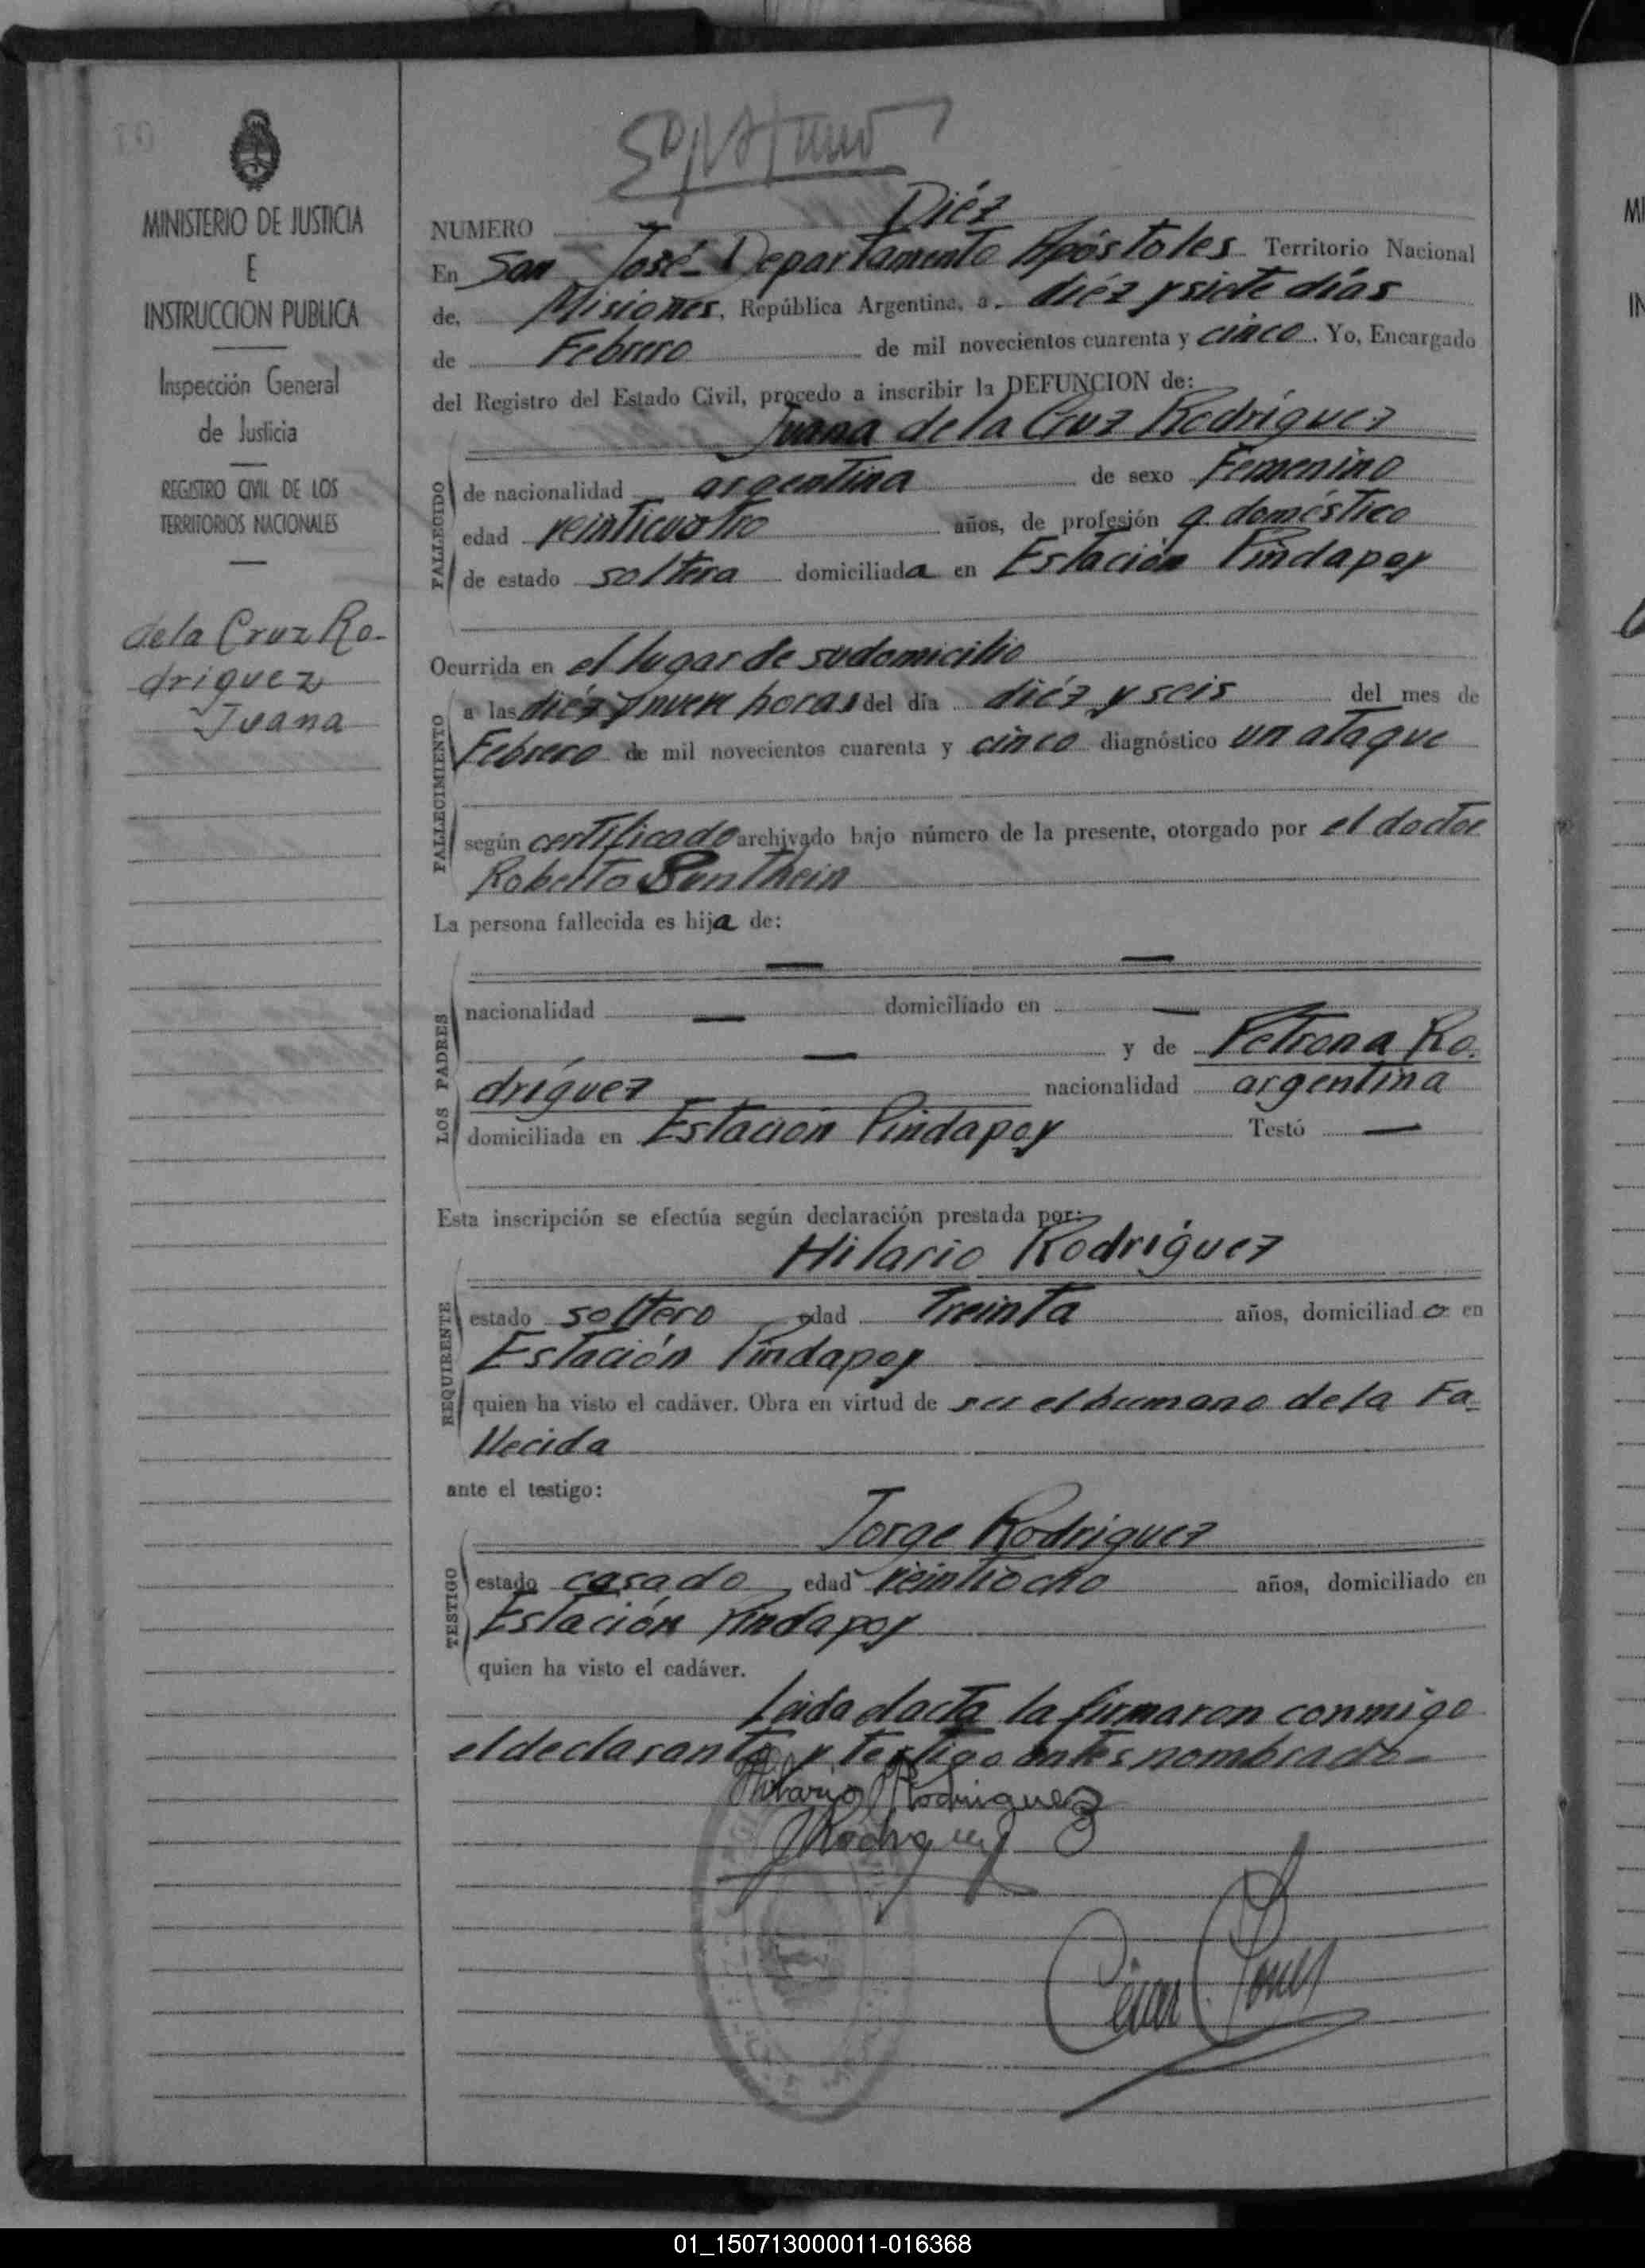 MINISTERIO DE JUSTICIA
E
INSTRUCCION PUBLICA
Inspección General
de Justicia
REGISTRO CIVIL DE LOS
TERRITORIOS NACIONALES
de la Cruz Ro-
driguez
Juana
NUMERO Diéz
En San José - Departamento Apóstoles Territorio Nacional
de, Misiones, República Argentina, a. diéz y siete días
de Febrero de mil novecientos cuarenta y cinco. Yo, Encargado
del Registro del Estado Civil, procedo a inscribir la DEFUNCION de:
Juana de la Cruz Rodríguez
FALLECIDO
de nacionalidad argentina de sexo Femenino
edad veinticuatro años, de profesión q. doméstico
de estado soltera domiciliada en Estación Pindapoy
Ocurrida en el lugar de su domicilio
FALLECIMIENTO
a las diéz y nueve horas del día diéz y seis del mes de
Febrero de mil novecientos cuarenta y cinco diagnóstico un ataque
según certificado archivado bajo número de la presente, otorgado por el doctor
Roberto
La persona fallecida es hija de:
— —
LOS PADRES
nacionalidad — domiciliado en —
— y de Petrona Ro.
dríguez nacionalidad argentina
domiciliada en Estación Pindapoy Testó —
Esta inscripción se efectúa según declaración prestada por:
Hilario Rodríguez
REQUIRENTE
estado soltero edad Treinta años, domiciliado en
Estación Pindapoy
quien ha visto el cadáver. Obra en virtud de ser el humano de la Fa-
llecida
ante el testigo:
Jorge Rodriguez
TESTIGO
estado casado edad veintiocho años, domiciliado en
Estación Pindapoy
quien ha visto el cadáver.
Leida el acta la firmaron conmigo
el declarante y testigo antes nombrado-
Hilario Rodriguez
JRodriguez
01_150713000011-016368